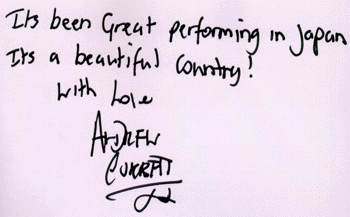 Its been Great performing in Japan
Its a beautiful Country!
With Love
ANDREW